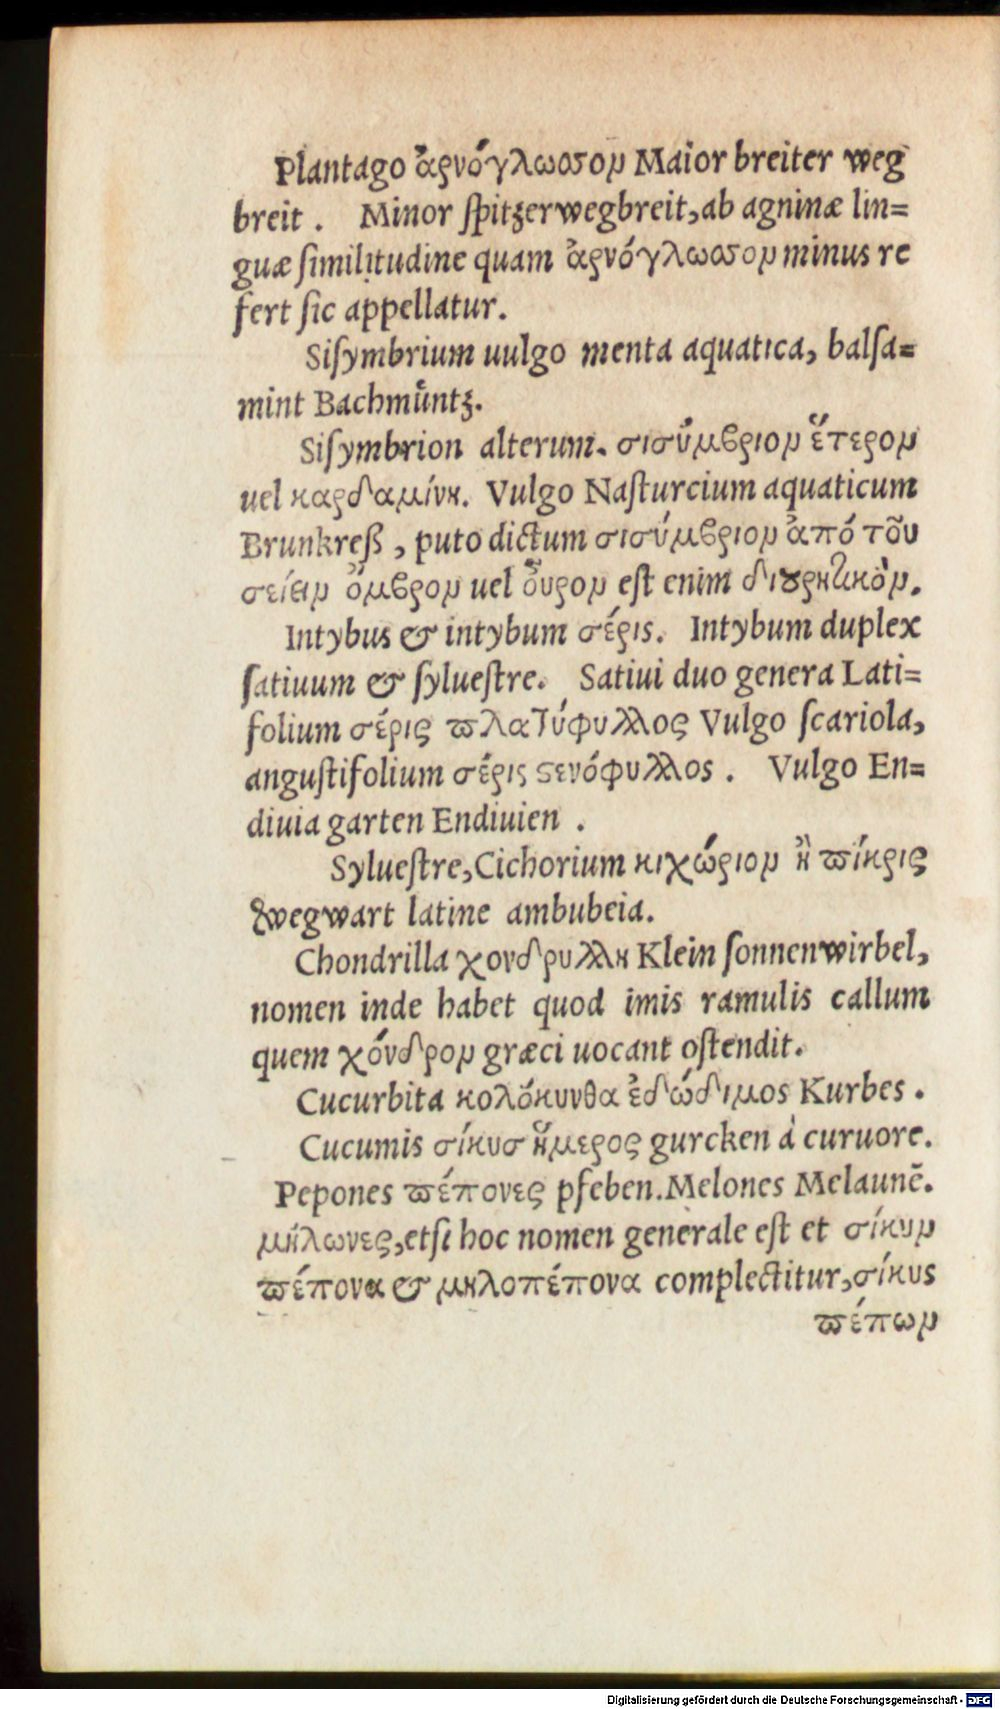 Plantago ἀρνόγλωσσον Maior breiter weg
breit . Minor ſpitzerwegbreit, ab agninæ lin=
guæ ſimilitudine quam ἀρνόγλωσσον minus re
fert ſic appellatur.
Siſymbrium uulgo menta aquatica, balſa=
mint Bachmuͤntz.
Siſymbrion alterum. σισύμβριον ἕτερον
uel καρδαμίνη. Vulgo Naſturcium aquaticum
Brunkreß , puto dictum σισύμβριον ἀπό τοῦ
σείειν ὄμβρον uel οὖρον eſt enim διουρητικὸν.
Intybus & intybum σέρις. Intybum duplex
ſatiuum & ſylueſtre. Satiui duo genera Lati=
folium σέρις πλατύφυλλος Vulgo ſcariola,
anguſtifolium σέρις στενόφυλλος . Vulgo En=
diuia garten Endiuien .
Sylueſtre, Cichorium κιχώριον ἢ πίκρις
wegwart latine ambubeia.
Chondrilla χονδρυλλη Klein ſonnenwirbel,
nomen inde habet quod imis ramulis callum
quem χόνδρον græci uocant oſtendit.
Cucurbita κολόκυνθα ἐδώδιμος Kurbes .
Cucumis σίκυσ ἥμερος gurcken à curuore.
Pepones πέπονες pfeben. Melones Melaunē.
μήλωνες, etſi hoc nomen generale eſt et σίκυν
πέπονα & μηλοπέπονα complectitur, σίκυς
πέπων
Digitalisierung gefördert durch die Deutsche Forschungsgemeinschaft - DFG